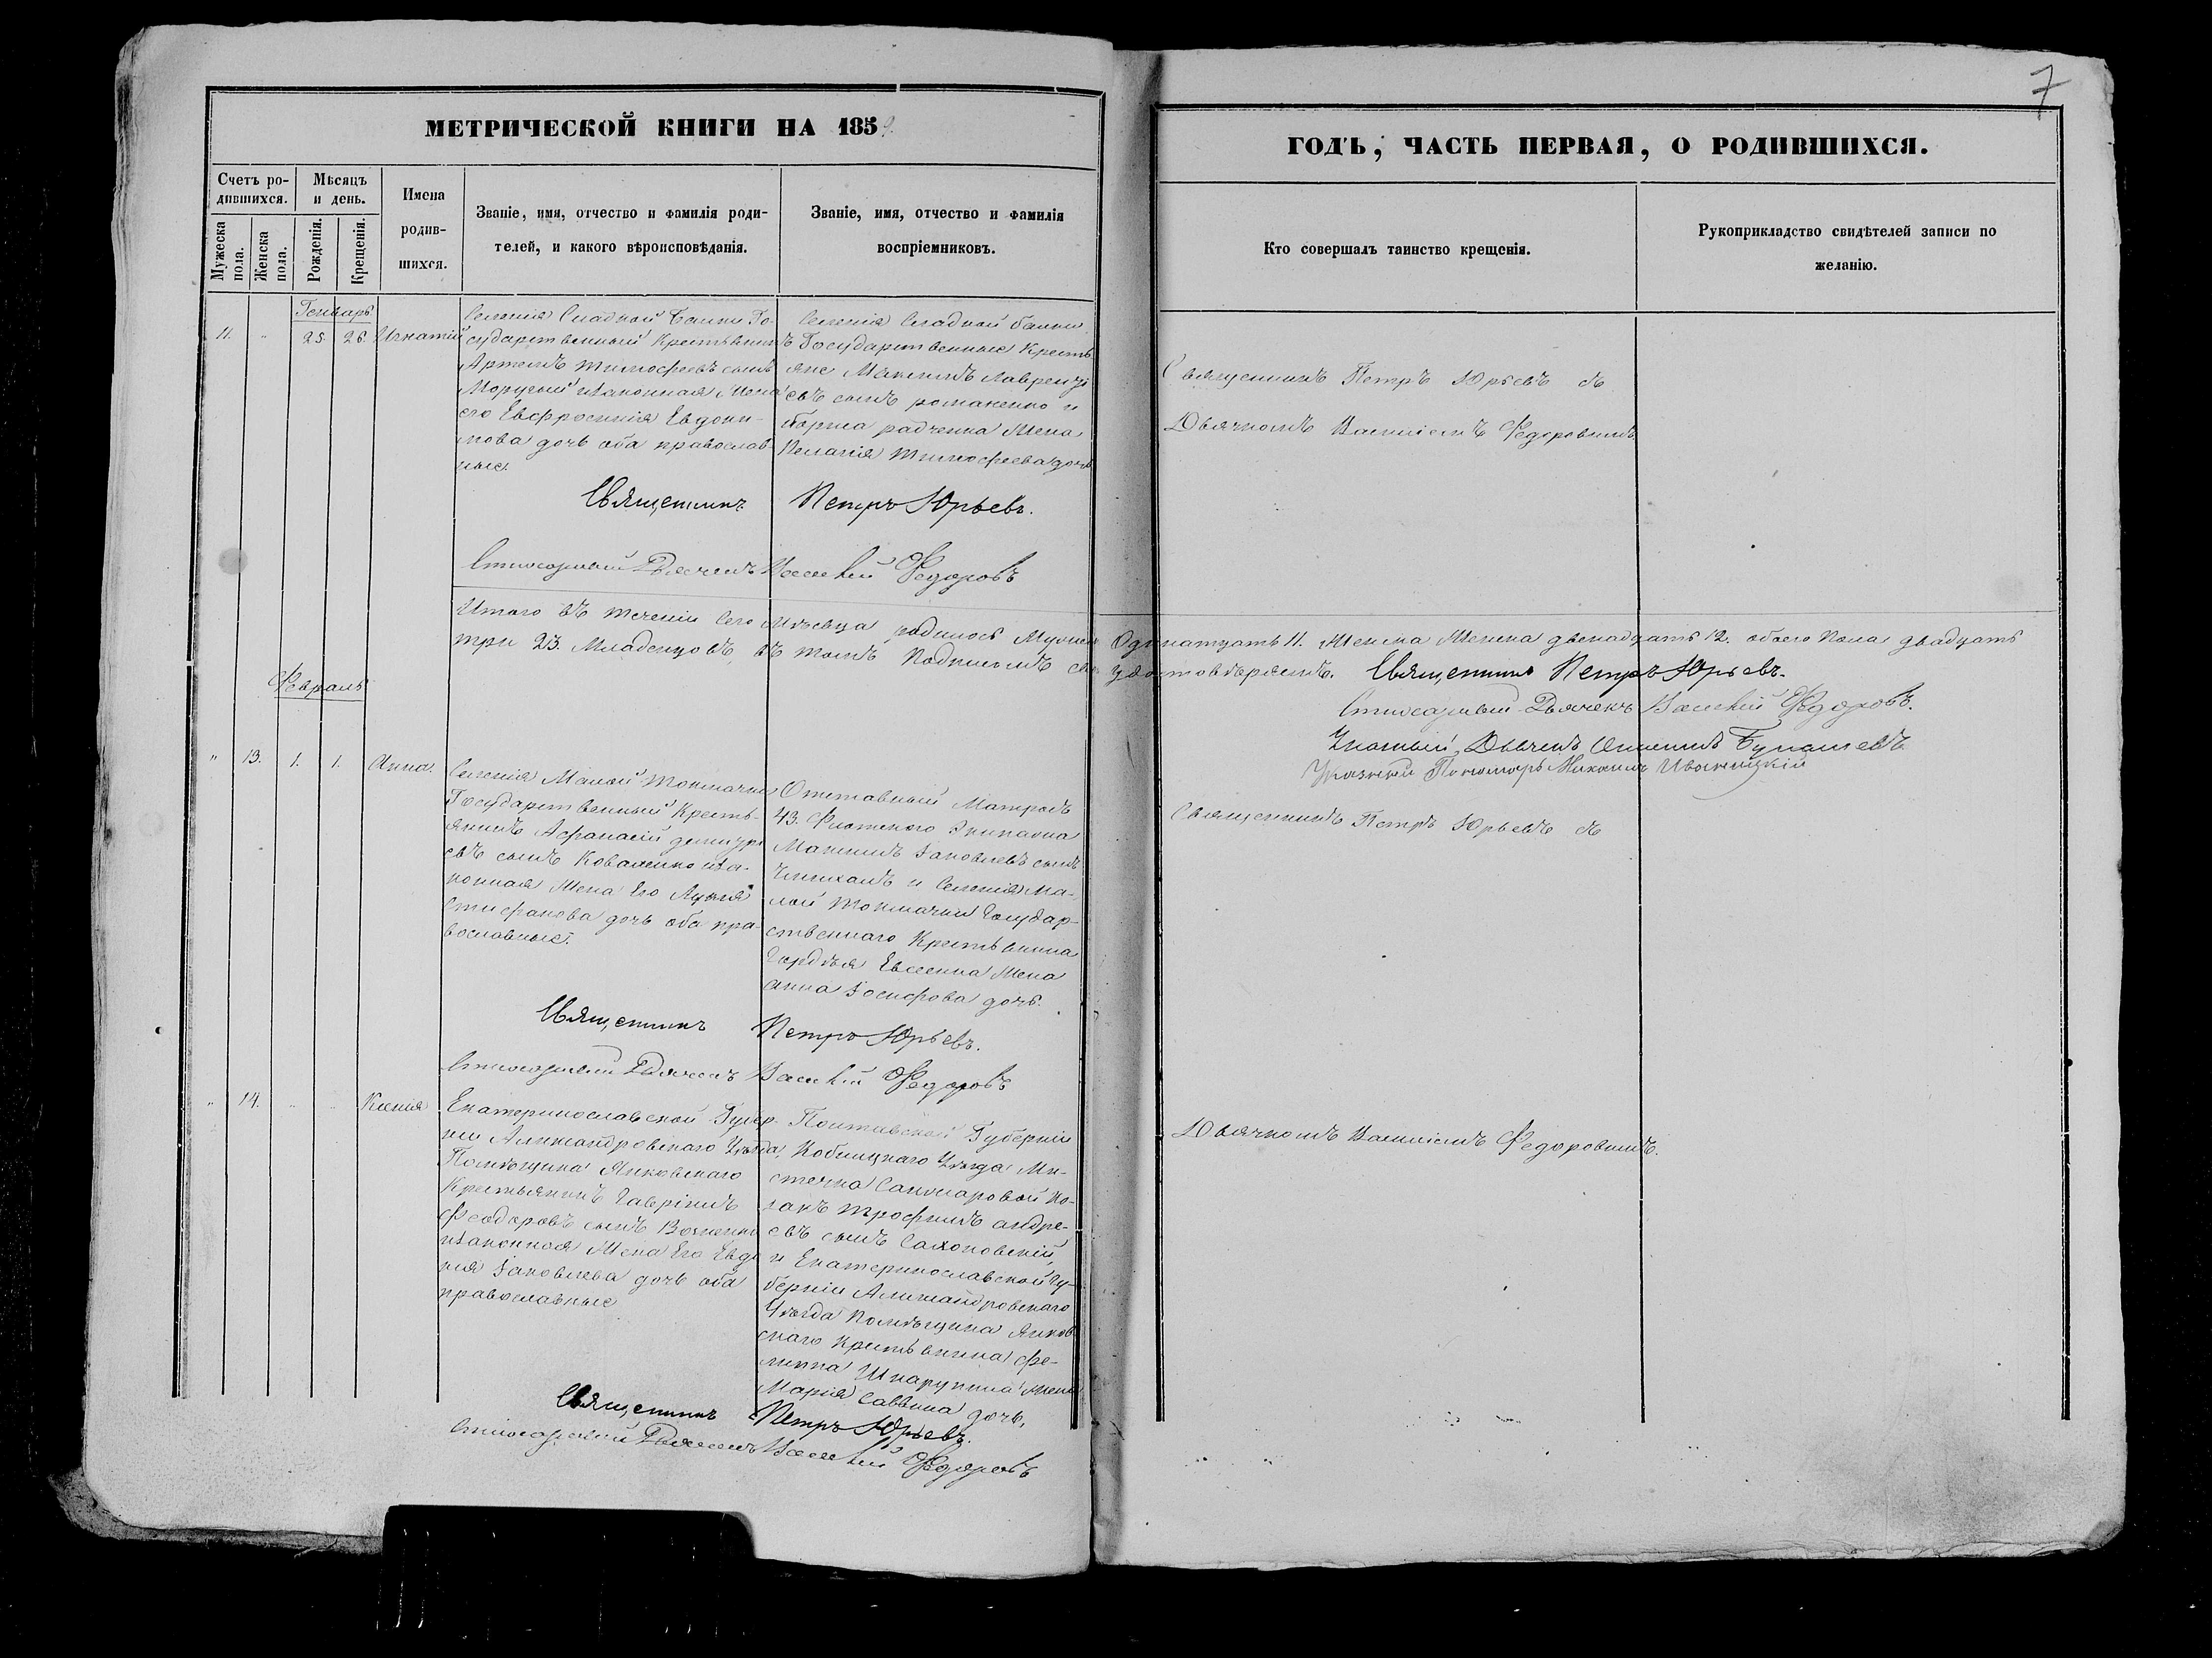 7
МЕТРИЧЕСКОЙ КНИГИ НА 1859.
ГОДЪ, ЧАСТЬ ПЕРВАЯ, О РОДИВШИХСЯ.
Счетъ ро-
дившихся.
Мѣсяцъ
и день.
Мужеска
пола.
Женска
пола.
Рожденія.
Крещенія.
Имена
родив-
шихся.
Званіе, имя, отчество и фамилія роди-
телей, и какого вѣроисповѣданія.
Званіе, имя, отчество и фамилія
воспріемниковъ.
Кто совершалъ таинство крещенія.
Рукоприкладство свидѣтелей записи по
желанію.
Генварь
11. " 25. 26. Игнатій
Селенія Сладкой Балки Го-
сударственный Крестьянинъ
Артемъ Тимофеевъ сынъ
изаконная Жена
его Евфросинія Евдоки-
мова дочь оба православ-
ные.
Селенія Сладкой балки
Государственные Кресть
яне Максимъ Лавренті
евъ сынъ романенко и
бориса радченка Жена
Пелагія Тимофеева дочь
Священникъ Петръ Юрьевъ съ
Дьячкомъ Василіемъ Федоровымъ
Священникъ Петръ Юрьевъ.
Стихарный Дьячекъ Василій Федоровъ
Итого въ теченіи сего Мѣсяца родилось Мужеска Одинатцать 11. Женска двенадцать 12. обоего Пола двадцать
три 23. Младенцовъ, въ томъ Подписомъ удостовѣряемъ. Священникъ Петръ Юрьевъ.
Стихарный Дьячекъ Василій Федоровъ.
Дьячекъ
Указный Пономарь Михаилъ Иваницкій
Февраль
" 13. 1. 1. Анна.
Селенія Малой Токмачки
Государственный Кресть-
янинъ Афанасій
евъ сынъ Коваленко иза-
конная Жена Его
Стефанова дочь оба пра-
вославные.
Отставный Матрозъ
43. Флотскаго Экипажа
Максимъ Іаковлевъ сынъ
и Селенія Ма-
лой Токмачки Государ-
ственнаго Крестьянина
Гордѣя Евсеенка Жена
Анна Іосифова дочь.
Священникъ Петръ Юрьевъ съ
Священникъ Петръ Юрьевъ.
Стихарный Дьячекъ Василій Федоровъ
" 14. " " Ксенія
Екатеринославской Губер-
ніи Александровскаго Уѣзда,
Помѣщика Янковскаго
Крестьянинъ Гавріилъ
Феодоровъ сынъ
изаконная Жена Его Евдо
кія Іаковлева дочь оба
православные
Полтавской Губерніи
Кобеляцкаго Уѣзда Мѣ-
стечка Ко-
закъ Трофимъ андре-
евъ сынъ
и Екатеринославской Гу-
берніи Александровскаго
Уѣзда Помѣщика Янков
скаго Крестьянина Фи-
липпа Жена
Марія Саввина дочь,
Дьячкомъ Василіемъ Федоровымъ.
Священникъ Петръ Юрьевъ.
Стихарный Дьячекъ Василій Федоровъ